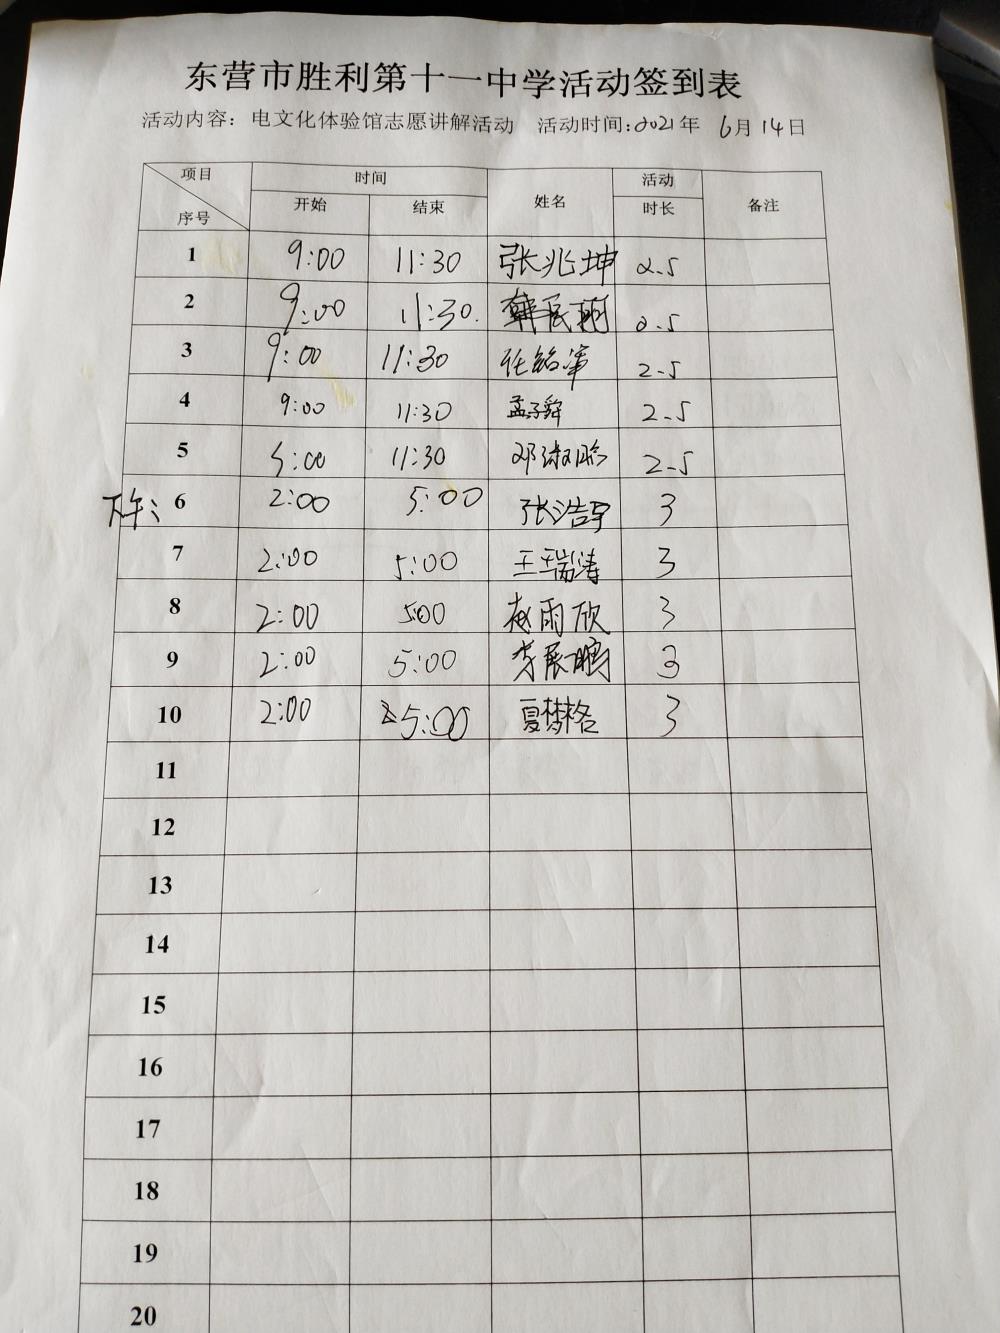 东营市胜利第十一中学活动签到表
活动内容：电文化体验馆志愿讲解活动 活动时间:2021年 6月14日
项目 时间 姓名 活动 备注
序号 开始 结束 时长
1 9:00 11:30 张兆坤 2.5
2 9:00 11:30. 2.5
3 9:00 11:30 2.5
4 9:00 11:30 孟子舜 2.5
5 :00 11:30 邓淑晗 2.5
下午: 6 2:00 5:00 张浩宇 3
7 2:00 5:00 王瑞涛 3
8 2:00 5:00 赵雨欣 3
9 2:00 5:00 李展鹏 3
10 2:00 5:00 夏梦格 3
11
12
13
14
15
16
17
18
19
20